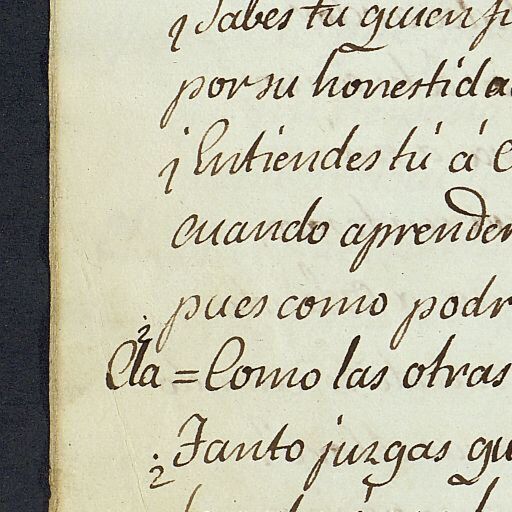 ¿Sabes tú quien
por su honestida
¿Entiendes tú á
cuando aprender
¿pues como podr
Cla = Como las otras
¿Tanto juzgas